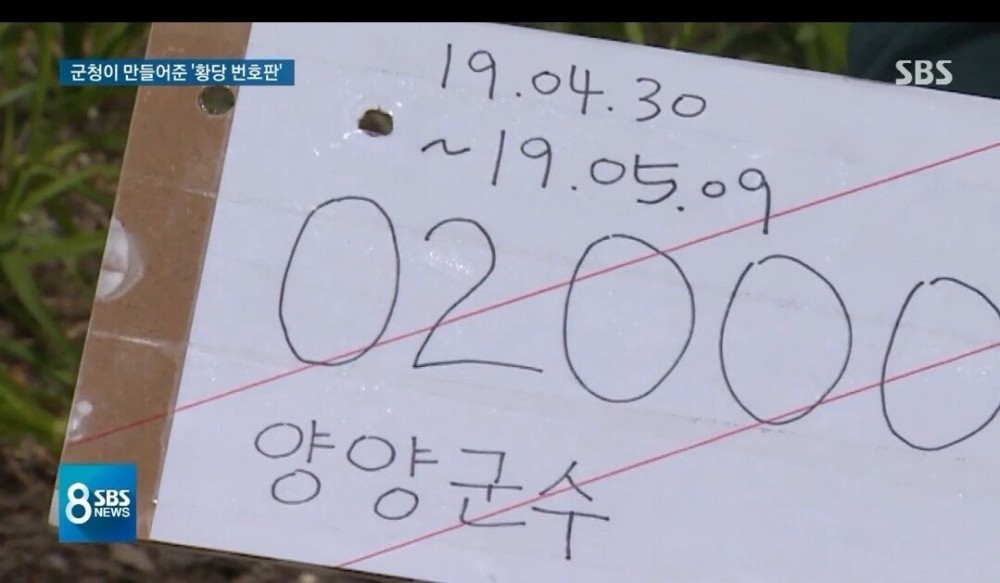 군청이 만들어준 '황당 번호판'
SBS
19.04.30
~19.05.09
02000
양양군수
8 SBS
NEWS